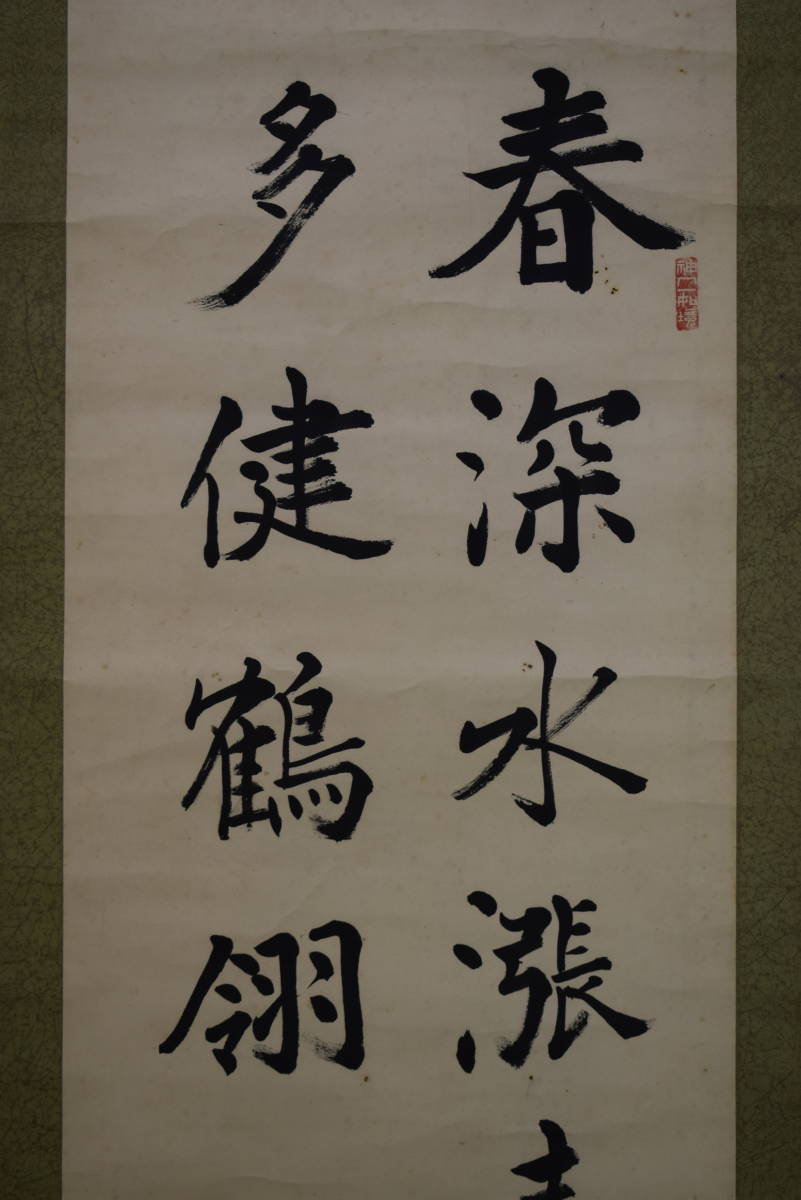 春深水漲
多健鶴翎